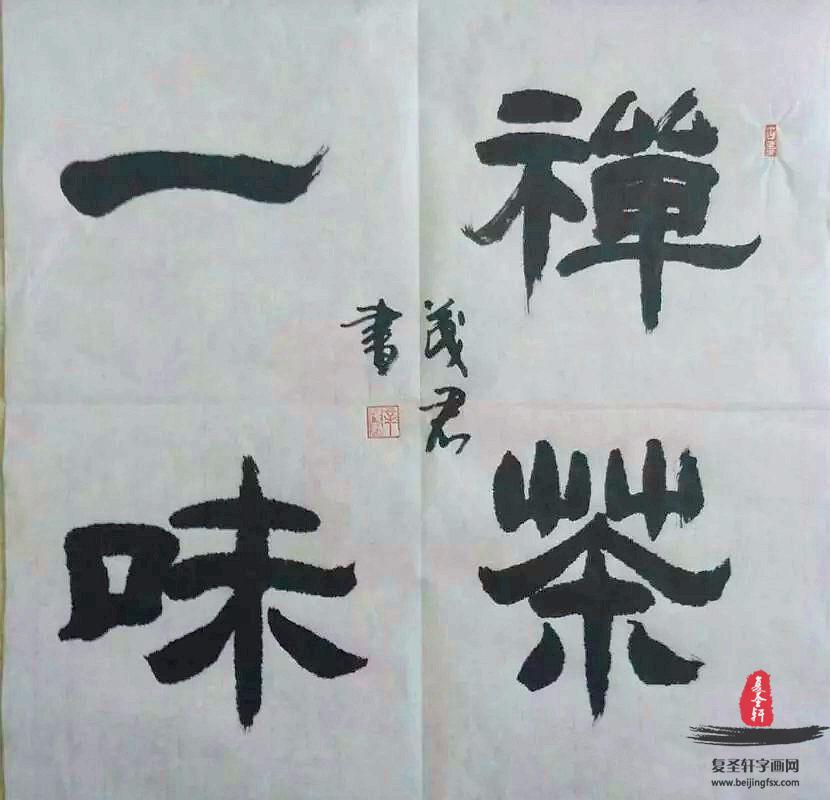 禪茶
一味
茂君
書
复圣轩
复圣轩字画网
www.beijingfsx.com